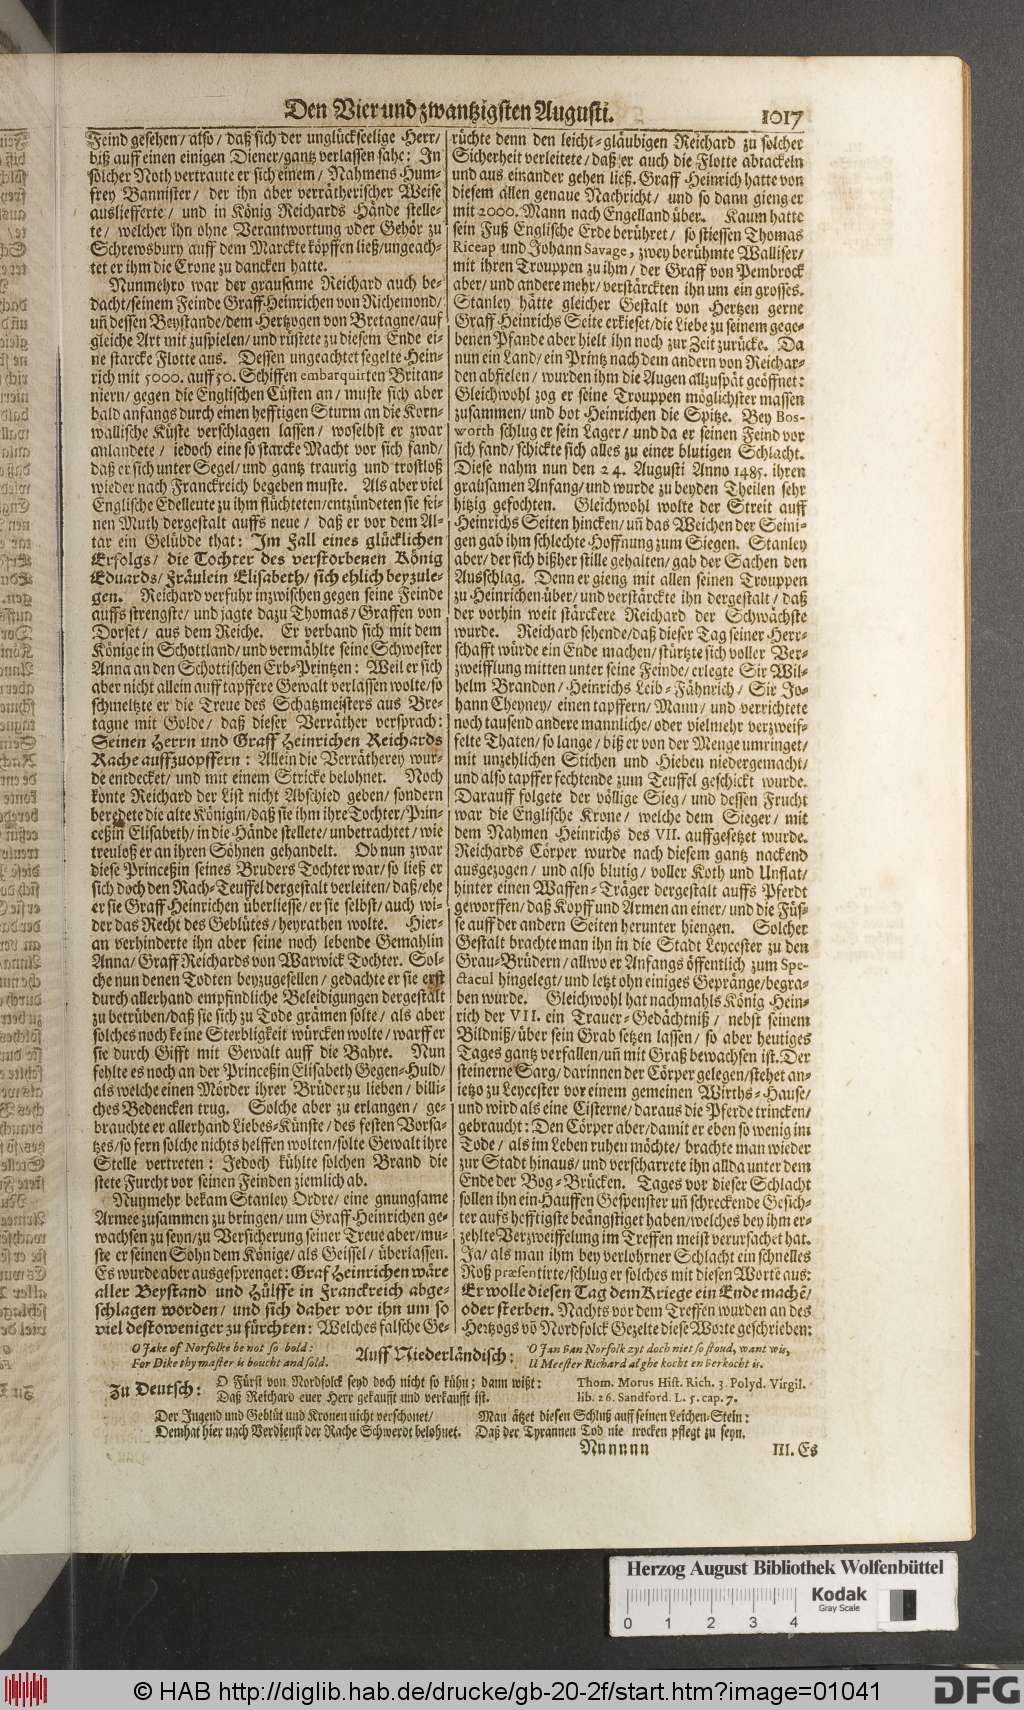 Den Vier und zwantzigsten Augusti.
1017
Feind gesehen/ also/ daß sich der unglückseelige Herr/
biß auff einen einigen Diener/ gantz verlassen sahe: In
solcher Noth vertraute er sich einem/ Nahmens Hum-
frey Bannister/ der ihn aber verrätherischer Weise
auslieferte/ und in König Reichards Hände stelle-
te/ welcher ihn ohne Verantwortung oder Gehör zu
Schrewsbury auff dem Marckte köpffen ließ/ ungeach-
tet er ihm die Crone zu dancken hatte.
Nunmehro war der grausame Reichard auch be-
dacht/ seinem Feinde Graff Heinrichen von Richemond/
uñ dessen Beystande/ dem Hertzogen von Bretagne/ auf
gleiche Art mit zuspielen/ und rüstete zu diesem Ende ei-
ne starcke Flotte aus. Dessen ungeachtet segelte Hein-
rich mit 5000. auff 50. Schiffen embarquirten Britan-
niern/ gegen die Englischen Cüsten an/ muste sich aber
bald anfangs durch einen hefftigen Sturm an die Korn-
wallische Küste verschlagen lassen/ woselbst er zwar
anlandete/ iedoch eine so starcke Macht vor sich fand/
daß er sich unter Segel/ und gantz traurig und trostloß
wieder nach Franckreich begeben muste. Als aber viel
Englische Edelleute zu ihm flüchteten/ entzündeten sie sei-
nen Muth dergestalt auffs neue/ daß er vor dem Al-
tar ein Gelübde that: Im Fall eines glücklichen
Erfolgs/ die Tochter des verstorbenen König
Eduards/ Fräulein Elisabeth/ sich ehlich beyzule-
gen. Reichard verfuhr inzwischen gegen seine Feinde
auffs strengste/ und jagte dazu Thomas/ Graffen von
Dorset/ aus dem Reiche. Er verband sich mit dem
Könige in Schottland/ und vermählte seine Schwester
Anna an den Schottischen Erb-Printzen: Weil er sich
aber nicht allein auff tapffere Gewalt verlassen wolte/ so
schmeltzte er die Treue des Schatzmeisters aus Bre-
tagne mit Golde/ daß dieser Verräther versprach:
Seinen Herrn und Graff Heinrichen Reichards
Rache auffzuopffern: Allein die Verrätherey wur-
de entdecket/ und mit einem Stricke belohnet. Noch
konte Reichard der List nicht Abschied geben/ sondern
beredete die alte Königin/ daß sie ihm ihre Tochter/ Prin-
ceßin Elisabeth/ in die Hände stellete/ unbetrachtet/ wie
treuloß er an ihren Söhnen gehandelt. Ob nun zwar
diese Princeßin seines Bruders Tochter war/ so ließ er
sich doch den Rach-Teuffel dergestalt verleiten/ daß/ ehe
er sie Graff Heinrichen überliesse/ er sie selbst/ auch wi-
der das Recht des Geblütes/ heyrathen wolte. Hier-
an verhinderte ihn aber seine noch lebende Gemahlin
Anna/ Graff Reichards von Warwick Tochter. Sol-
che nun denen Todten beyzugesellen/ gedachte er sie erst
durch allerhand empfindliche Beleidigungen dergestalt
zu betrüben/ daß sie sich zu Tode grämen solte/ als aber
solches noch keine Sterbligkeit würcken wolte/ warff er
sie durch Gifft mit Gewalt auff die Bahre. Nun
fehlte es noch an der Princeßin Elisabeth Gegen-Huld/
als welche einen Mörder ihrer Brüder zu lieben/ billi-
ches Bedencken trug. Solche aber zu erlangen/ ge-
brauchte er allerhand Liebes-Künste/ des festen Vorsa-
tzes/ so fern solche nichts helffen wolten/ solte Gewalt ihre
Stelle vertreten: Jedoch kühlte solchen Brand die
stete Furcht vor seinen Feinden ziemlich ab.
Nunmehr bekam Stanley Ordre/ eine gnungsame
Armee zusammen zu bringen/ um Graff Heinrichen ge-
wachsen zu seyn/ zu Versicherung seiner Treue aber/ mu-
ste er seinen Sohn dem Könige/ als Geissel/ überlassen.
Es wurde aber ausgesprenget: Graf Heinrichen wäre
aller Beystand und Hülffe in Franckreich abge-
schlagen worden/ und sich daher vor ihn um so
viel destoweniger zu fürchten: Welches falsche Ge-
rüchte denn den leicht-gläubigen Reichard zu solcher
Sicherheit verleitete/ daß er auch die Flotte abtackeln
und aus einander gehen ließ. Graff Heinrich hatte von
diesem allen genaue Nachricht/ und so dann gieng er
mit 2000. Mann nach Engelland über. Kaum hatte
sein Fuß Englische Erde berühret/ so stiessen Thomas
Riceap und Johann Savage, zwey berühmte Walliser/
mit ihren Trouppen zu ihm/ der Graff von Pembrock
aber/ und andere mehr/ verstärckten ihn um ein grosses.
Stanley hätte gleicher Gestalt von Hertzen gerne
Graff Heinrichs Seite erkieset/ die Liebe zu seinem gege-
benen Pfande aber hielt ihn noch zur Zeit zurücke. Da
nun ein Land/ ein Printz nach dem andern von Reichar-
den abfielen/ wurden ihm die Augen allzuspät geöffnet:
Gleichwohl zog er seine Trouppen möglichster massen
zusammen/ und bot Heinrichen die Spitze. Bey Bos-
worth schlug er sein Lager/ und da er seinen Feind vor
sich fand/ schickte sich alles zu einer blutigen Schlacht.
Diese nahm nun den 24. Augusti Anno 1485. ihren
grausamen Anfang/ und wurde zu beyden Theilen sehr
hitzig gefochten. Gleichwohl wolte der Streit auff
Heinrichs Seiten hincken/ uñ das Weichen der Seini-
gen gab ihm schlechte Hoffnung zum Siegen. Stanley
aber/ der sich bißher stille gehalten/ gab der Sachen den
Ausschlag. Denn er gieng mit allen seinen Trouppen
zu Heinrichen über/ und verstärckte ihn dergestalt/ daß
der vorhin weit stärckere Reichard der Schwächste
wurde. Reichard sehende/ daß dieser Tag seiner Herr-
schafft würde ein Ende machen/ stürtzte sich voller Ver-
zweifflung mitten unter seine Feinde/ erlegte Sir Wil-
helm Brandon/ Heinrichs Leib-Fähnrich/ Sir Jo-
hann Cheyney/ einen tapffern/ Mann/ und verrichtete
noch tausend andere mannliche/ oder vielmehr verzweif-
felte Thaten/ so lange/ biß er von der Menge umringet/
mit unzehlichen Stichen und Hieben niedergemacht/
und also tapffer fechtende zum Teuffel geschickt wurde.
Darauff folgete der völlige Sieg/ und dessen Frucht
war die Englische Krone/ welche dem Sieger/ mit
dem Nahmen Heinrichs des VII. auffgesetzet wurde.
Reichards Cörper wurde nach diesem gantz nackend
ausgezogen/ und also blutig/ voller Koth und Unflat/
hinter einen Waffen-Träger dergestalt auffs Pferdt
geworffen/ daß Kopff und Armen an einer/ und die Füs-
se auff der andern Seiten herunter hiengen. Solcher
Gestalt brachte man ihn in die Stadt Leycester zu den
Grau-Brüdern/ allwo er Anfangs öffentlich zum Spe-
ctacul hingelegt/ und letzt ohn einiges Gepränge/ begra-
ben wurde. Gleichwohl hat nachmahls König Hein-
rich der VII. ein Trauer-Gedächtniß/ nebst seinem
Bildniß/ über sein Grab setzen lassen/ so aber heutiges
Tages gantz verfallen/ uñ mit Graß bewachsen ist. Der
steinerne Sarg/ darinnen der Cörper gelegen/ stehet an-
ietzo zu Leycester vor einem gemeinen Wirths-Hause/
und wird als eine Cisterne/ daraus die Pferde trincken/
gebraucht: Den Cörper aber/ damit er eben so wenig im
Tode/ als im Leben ruhen möchte/ brachte man wieder
zur Stadt hinaus/ und verscharrete ihn allda unter dem
Ende der Bog-Brücken. Tages vor dieser Schlacht
sollen ihn ein Hauffen Gespenster uñ schreckende Gesich-
ter aufs hefftigste beängstiget haben/ welches bey ihm er-
zehlte Verzweiffelung im Treffen meist verursachet hat.
Ja/ als man ihm bey verlohrner Schlacht ein schnelles
Roß præsentirte/ schlug er solches mit diesen Wortẽ aus:
Er wolle diesen Tag dem Kriege ein Ende machẽ/
oder sterben. Nachts vor dem Treffen wurden an des
Hertzogs võ Nordfolck Gezelte diese Worte geschrieben:
O Jake of Norfolke be not so bold:
For Dike thy master is boucht and sold.
Auff Niederländisch:
O Jan van Norfolk zyt doch niet so stoud, want wis,
U Meester Richard al ghe kocht en verkocht is.
Zu Deutsch:
O Fürst von Nordfolck seyd doch nicht so kühn; dann wißt:
Daß Reichard euer Herr gekaufft und verkaufft ist.
Thom. Morus Hist. Rich. 3. Polyd. Virgil.
lib. 26. Sandford. L. 5. cap. 7.
Der Jugend und Geblüt und Kronen nicht verschonet/
Dem hat hier nach Verdienst der Rache Schwerdt belohnet.
Man ätzet diesen Schluß auff seinen Leichen-Stein:
Daß der Tyrannen Tod nie trocken pflegt zu seyn.
Nnnnnn
III. Es
Herzog August Bibliothek Wolfenbüttel
Kodak
Gray Scale
0 1 2 3 4
© HAB http://diglib.hab.de/drucke/gb-20-2f/start.htm?image=01041
DFG